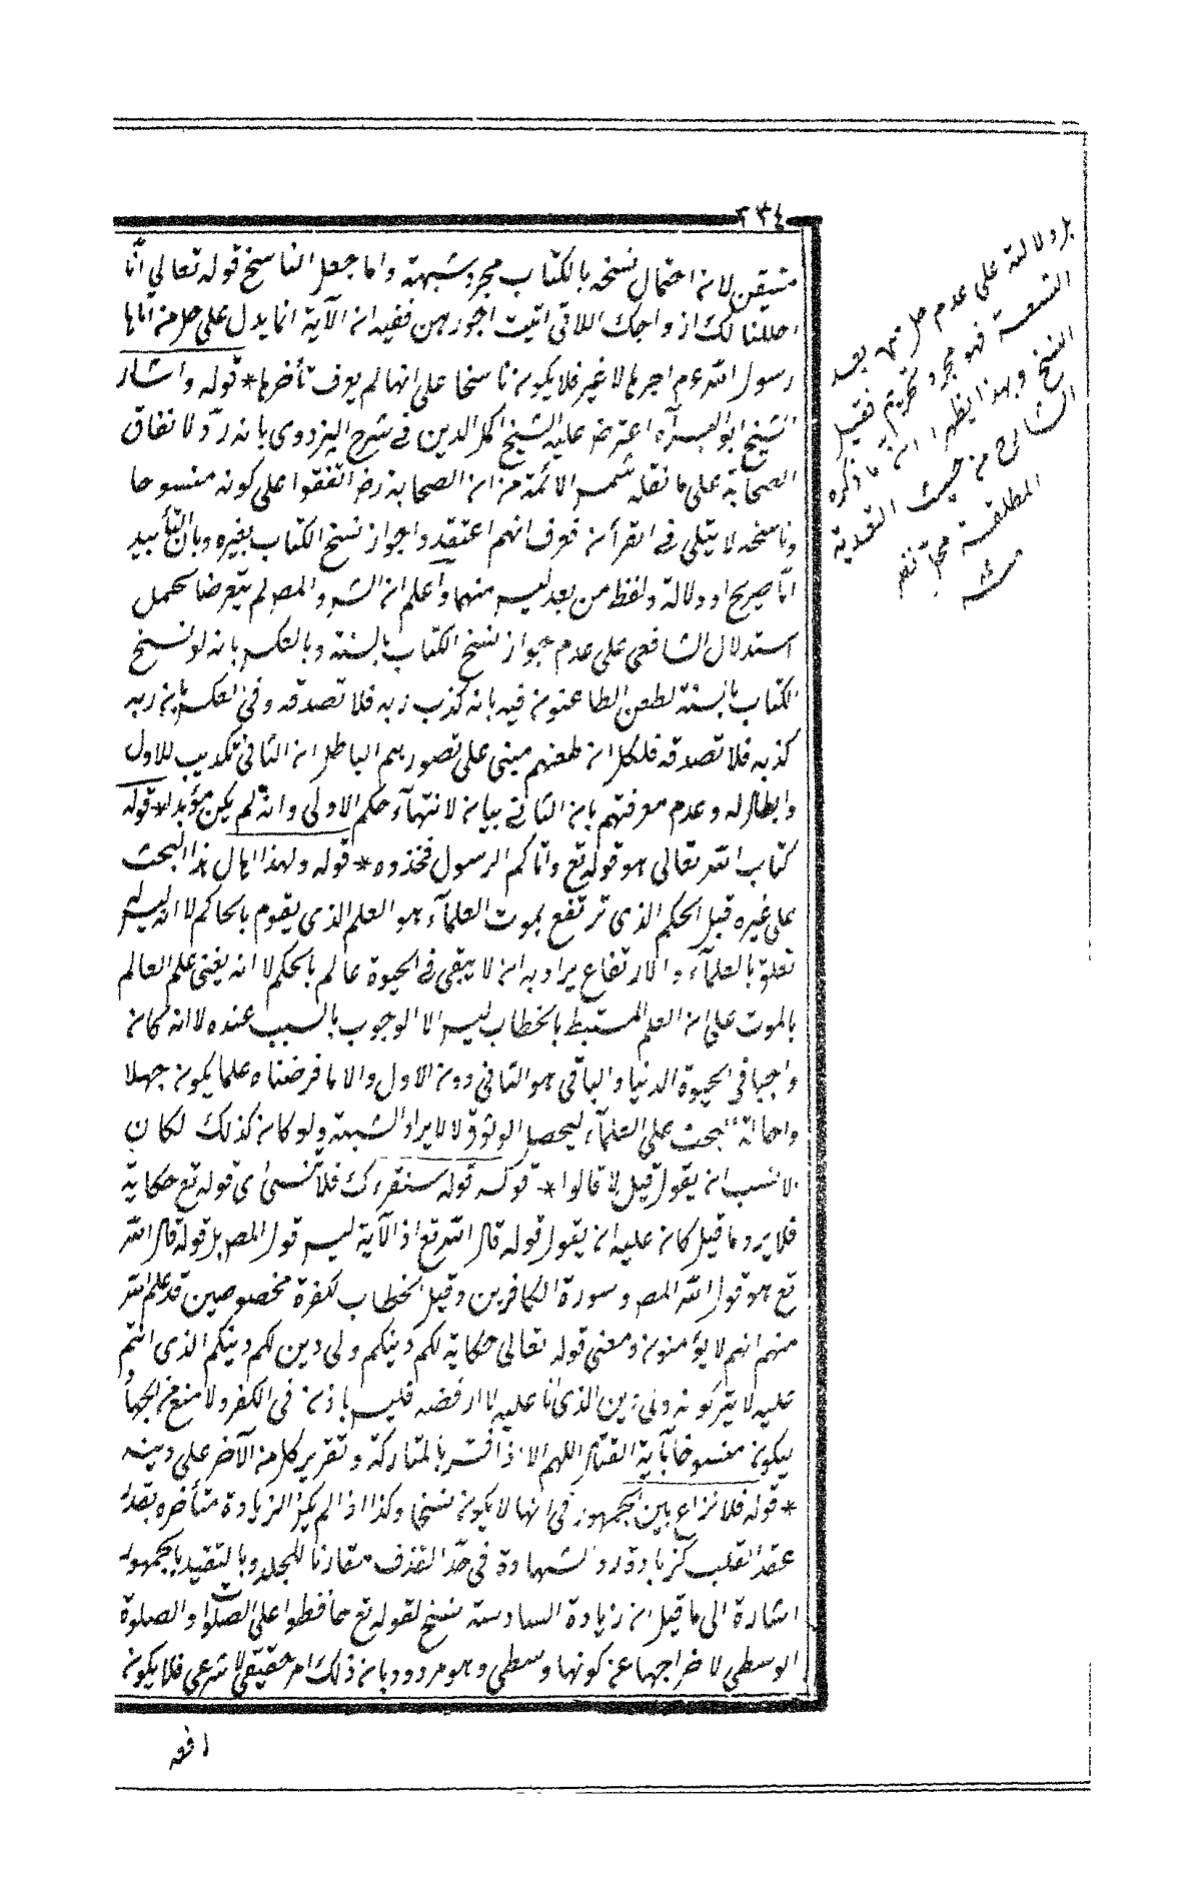 ٢٣٤
متيقن لان احتمال نسخه بالكتاب مجرد شبهة واما جعل الناسخ قوله تعالى انا
احللنا لك ازواجك اللاتى اتيت اجورهن ففيه ان الآية انما يدل على حل من اتاها
رسول الله عم اجرها لا غير فلا يكون ناسخا على انها لم يعرف تأخرها * قوله واشار
الشيخ ابو اليسر آه اعترض عليه الشيخ اكمل الدين في شرح البزدوى بانه رد لاتفاق
الصحابة على ما نقله شمس الائمة من ان الصحابة رضـ اتفقوا على كونه منسوخا
وناسخه لا يتلى في القرأن فعرف انهم اعتقدوا جواز نسخ الكتاب بغيره وبان التأبيد
اما صريح او دلالة ولفظ من بعد ليس منهما واعلم ان الشـ والمصـ لم يتعرضا لحمل
استدلال الشافعى على عدم جواز نسخ الكتاب بالسنة وبالعكس بانه لو نسخ
الكتاب بالسنة لطعن الطاعنون فيه بانه كذب ربه فلا تصدقه وفى العكس بان ربه
كذبه فلا تصدقه فلكل ان طعنهم مبنى على تصورهم الباطل ان الثانى تكذيب للاول
وابطال له وعدم معرفتهم بان الثانى بيان لانتهاء حكم الاولى وانه لم يكن مؤبدا * قوله
كتاب الله تعالى هو قوله تع وما اتاكم الرسول فخذوه * قوله ولهذا احال هذا البحث
على غيره قيل الحكم الذى ترتفع بموت العلماء هو العلم الذى يقوم بالحاكم لا انه ليس
تعلق بالعلماء والارتفاع يراد به ان لا يبقى في الحيوة عالم بالحكم لا انه يفنى علم العالم
بالموت على ان العلم المستنبط بالخطاب ليس الا الوجوب بالسبب عنده لا انه كان
واجبا فى الحيوة الدنيا والباقى هو الثانى دون الاول والا ما فرضناه علما يكون جهلا
واحالة البحث على العلماء ليحصل الوثوق لا لايراد الشبهة ولو كان كذلك لكان
الانسب ان يقول قيل لا قالوا * قوله قوله سنقرءك فلا تنسى اى قوله تع حكاية
فلا يرد ما قيل كان عليه ان يقول قوله قال الله تع اذ الآية ليس قول المصـ بل قوله قال الله
تع هو قول الله المصـ وسورة الكافرين وقيل الخطاب لكفرة مخصوصين قد علم الله
منهم انهم لا يؤمنون ومعنى قوله تعالى حكاية لكم دينكم ولى دين لكم دينكم الذى انتم
عليه لا يتركونه ولى دين الذى انا عليه لا ارفضه فليس باذن فى الكفر ولا منع من الجهاد
ليكون منسوخا بآية القتال اللهم الا اذا فسر بالمتاركة وتقرير كل من الآخر على دينه
* قوله فلا نزاع بين الجمهور فى انها لا يكون نسخا وكذا اذا لم يكن الزيادة متأخره بقدر
عقد القلب كزيادة رد الشهادة فى حد القذف مقارنا للجلد وبالتقييد بالجمهور
اشارة الى ما قيل ان زيادة السادسة نسخ لقوله تع حافظوا على الصلوات والصلوة
الوسطى لاخراجها عن كونها وسطى وهو مردود بان ذلك امر حقيقى لا شرعى فلا يكون
بل دلالته على عدم حل من بعد
التسعة فهو مجرد تحريم فقيل
النسخ وبهذا يظهر ان ما ذكره
الشارح من حيث التعدية
المطلقة محل نظر
منه